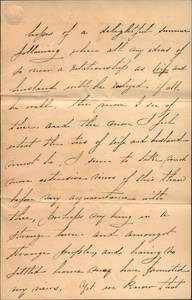 hopes of a delightful summer
following where all my ideas of
so near a relationship as wife and
husband will be realized. if all
be well. The more I see of
thee, and the more I feel
what the ties of wife and husband
must be, I seem to take, and
more extensive views of this than
before my acquaintance with
thee, perhaps my being in a
strange town and amongst
strange people, and having no
settled home may have formulated
my views. Yet we know that